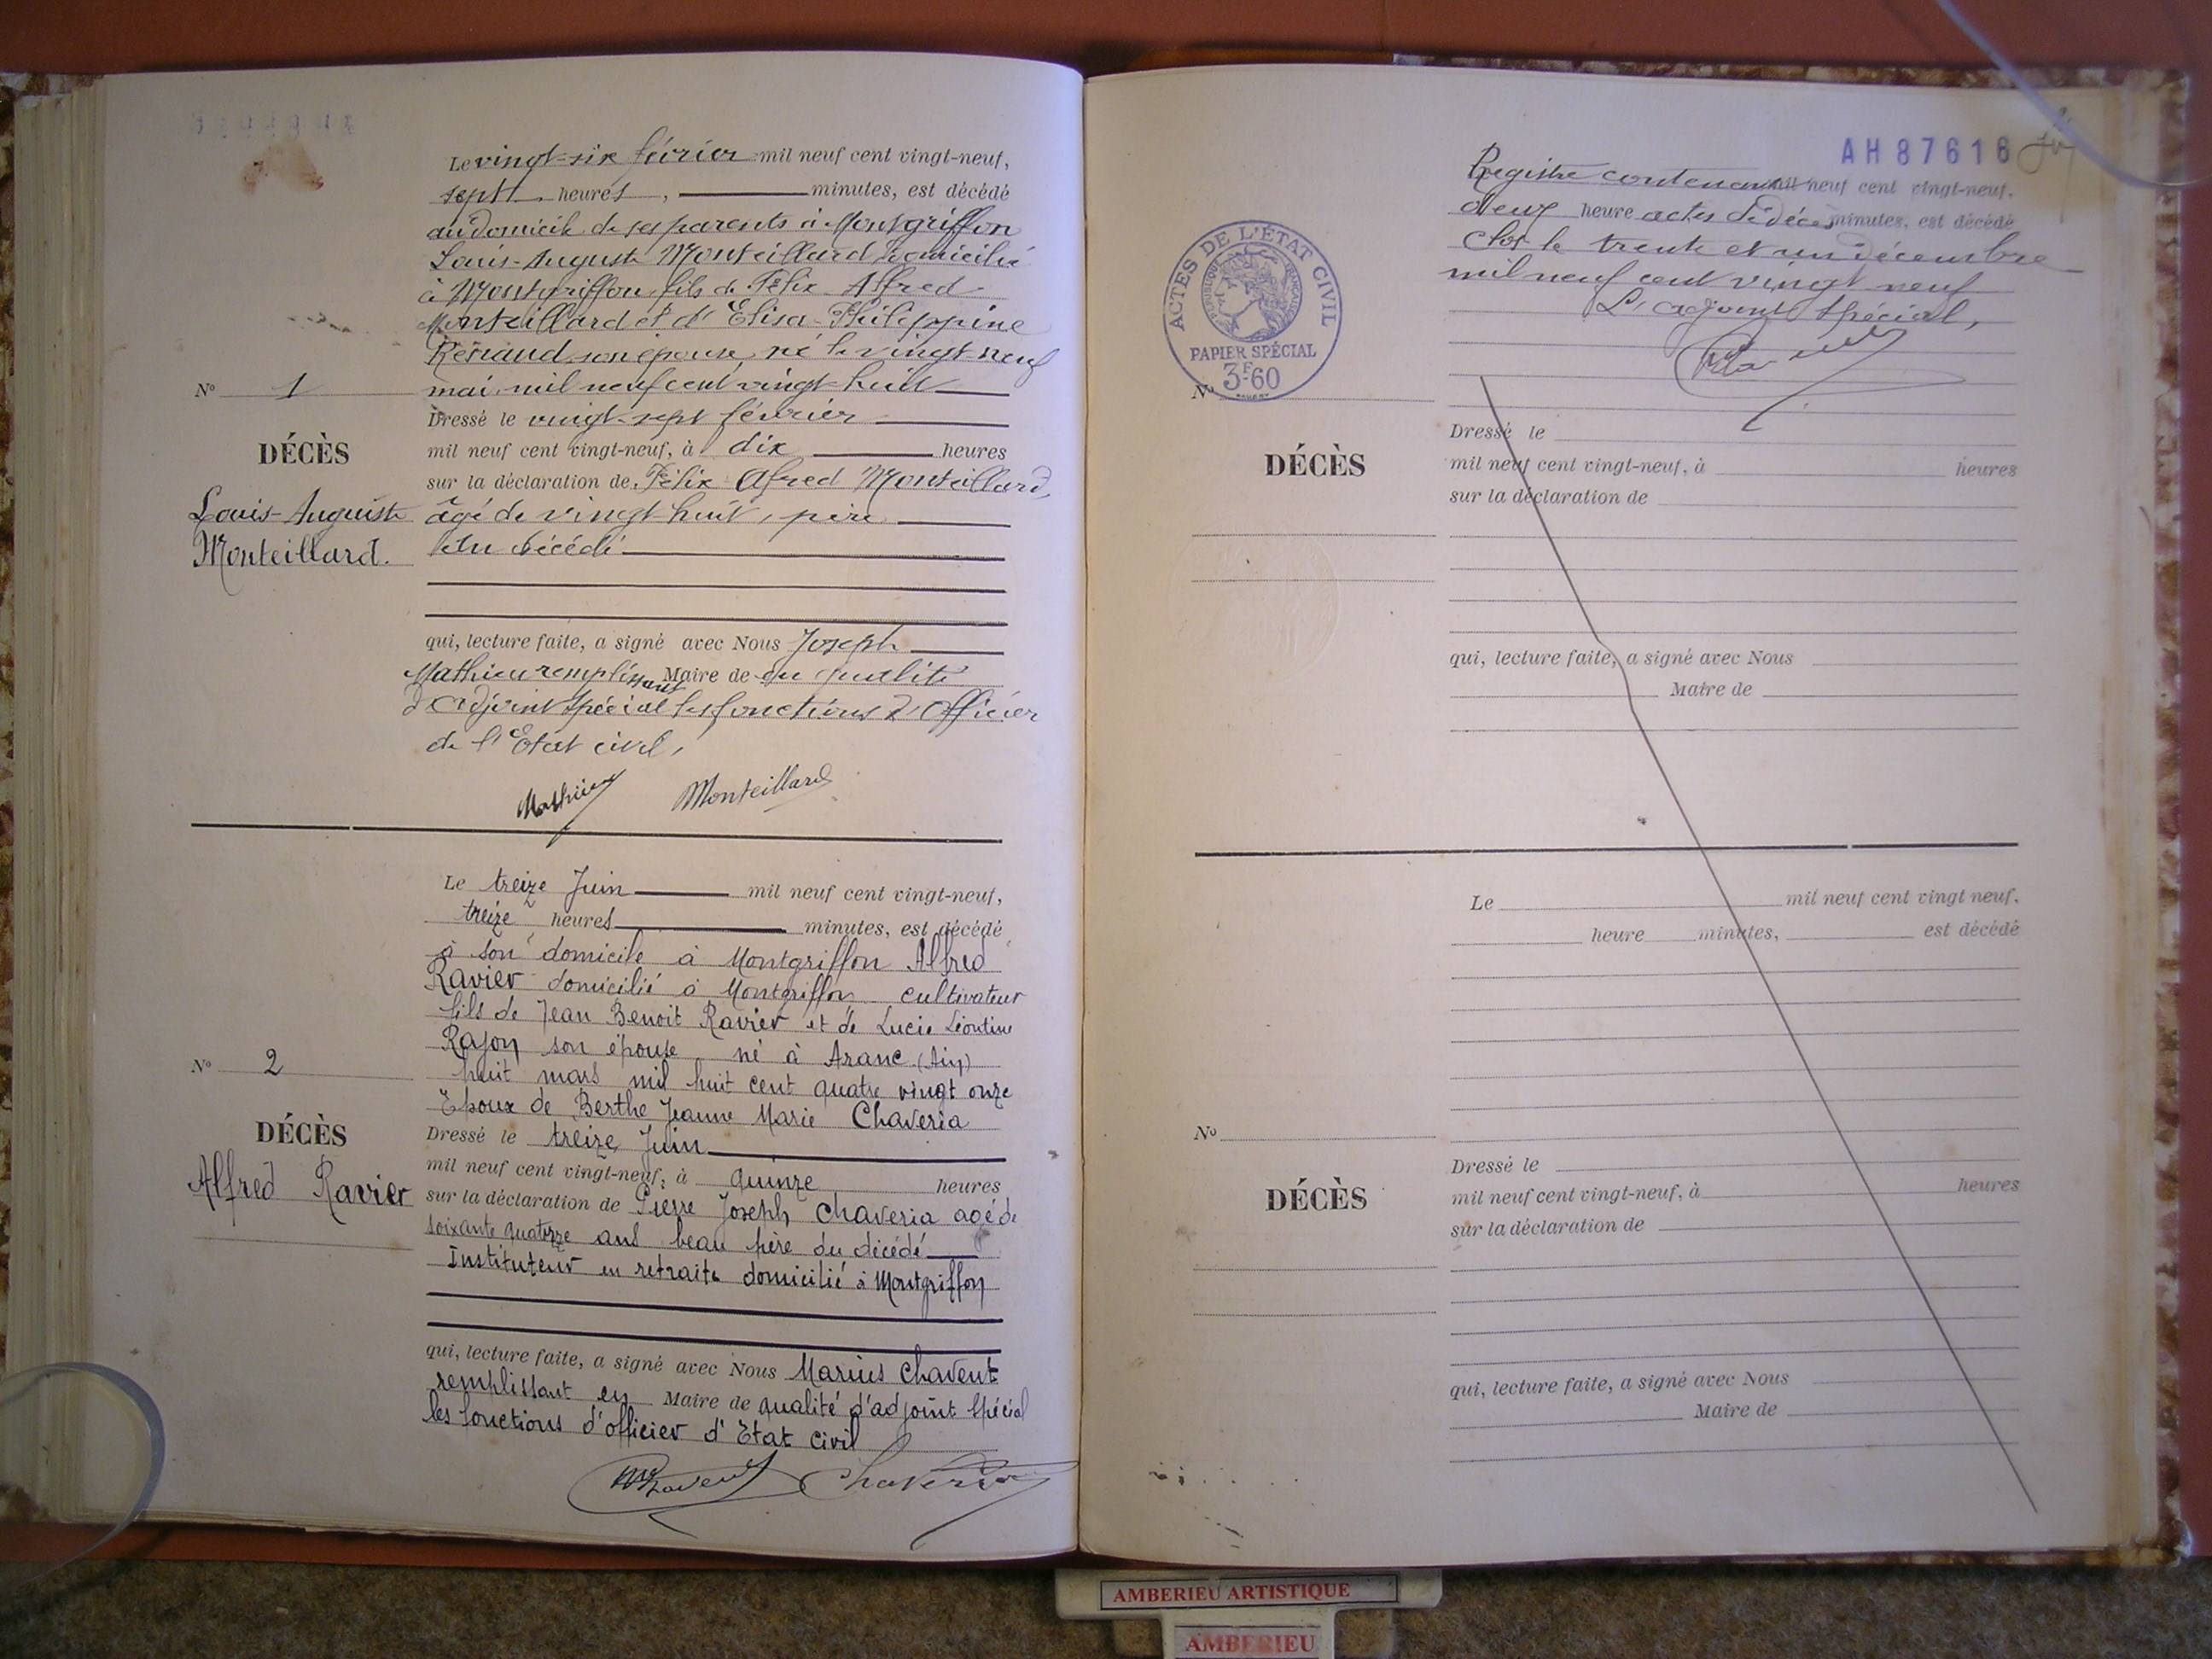 Le vingt-six février mil neuf cent vingt-neuf,
sept heures, minutes, est décédé
au domicile de ses parents à Montgriffon
Louis-Auguste Monteillard domicilié
à Montgriffon fils de Félix-Alfred
Monteillard et d'Elisa-Philippine
Renaud son épouse, né le vingt-neuf
mai mil neuf cent vingt-huit
Dressé le vingt-sept février
mil neuf cent vingt-neuf, à dix heures
sur la déclaration de Félix Alfred Monteillard,
âgé de vingt-huit, père
du décédé
qui, lecture faite, a signé avec Nous Joseph
Mathieu remplissant Maire de en qualité
d'adjoint spécial les fonctions d'Officier
de l'Etat civil,
Mathieu Monteillard
No 1
DÉCÈS
Louis-Auguste
Monteillard.
Le treize Juin mil neuf cent vingt-neuf,
treize heures minutes, est décédé
à son domicile à Montgriffon Alfred
Ravier domicilié à Montgriffon cultivateur
fils de Jean Benoit Ravier et de Lucie Léontine
Rajon son épouse né à Aranc (Ain)
huit mars mil huit cent quatre vingt onze
Epoux de Berthe Jeanne Marie Chaveria
Dressé le treize Juin
mil neuf cent vingt-neuf, à quinze heures
sur la déclaration de Pierre Joseph Chaveria agé de
soixante quatorze ans beau père du décédé
Instituteur en retraite domicilié à Montgriffon
qui, lecture faite, a signé avec Nous Marius Chavent
remplissant en Maire de qualité d'adjoint spécial
les fonctions d'officier d'Etat civil
Chavent Chaveria
No 2
DÉCÈS
Alfred Ravier
AH 87616
Registre contenant mil neuf cent vingt-neuf,
deux heure actes de décès minutes, est décédé
Clos le trente et un décembre
mil neuf cent vingt neuf
L'adjoint spécial,
ACTES DE L'ÉTAT CIVIL
RÉPUBLIQUE FRANÇAISE
PAPIER SPÉCIAL
3F60
No
DÉCÈS
Dressé le
mil neuf cent vingt-neuf, à heures
sur la déclaration de
qui, lecture faite, a signé avec Nous
Maire de
Le mil neuf cent vingt neuf,
heure minutes, est décédé
No
DÉCÈS
Dressé le
mil neuf cent vingt-neuf, à heures
sur la déclaration de
qui, lecture faite, a signé avec Nous
Maire de
AMBERIEU ARTISTIQUE
AMBERIEU